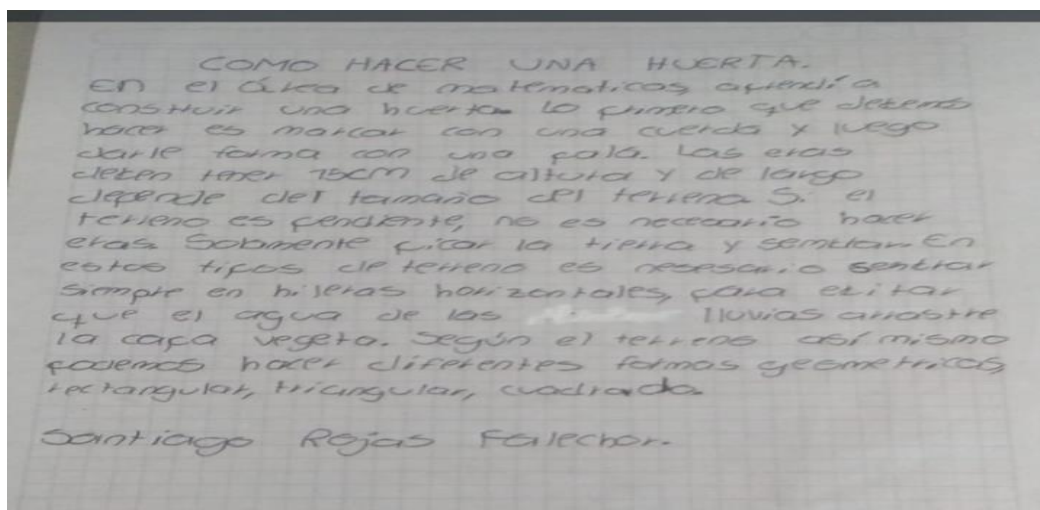 COMO HACER UNA HUERTA.
En el área de matematicas, aprendí a
construir una huerta. Lo primero que debemos
hacer es marcar con una cuerda y luego
darle forma con una pala. Las eras
deben tener 15cm de altura y de largo
depende del tamaño del terreno Si el
terreno es pendiente, no es necesario hacer
eras. Solamente picar la tierra y sembrar. En
estos tipos de terreno es necesario sembrar
siempre en hileras horizontales, para evitar
que el agua de las lluvias arrastre
la capa vegeta. Según el terreno así mismo
podemos hacer diferentes formas geometricas,
rectangular, triangular, cuadrado.
Santiago Rojas Falechor.